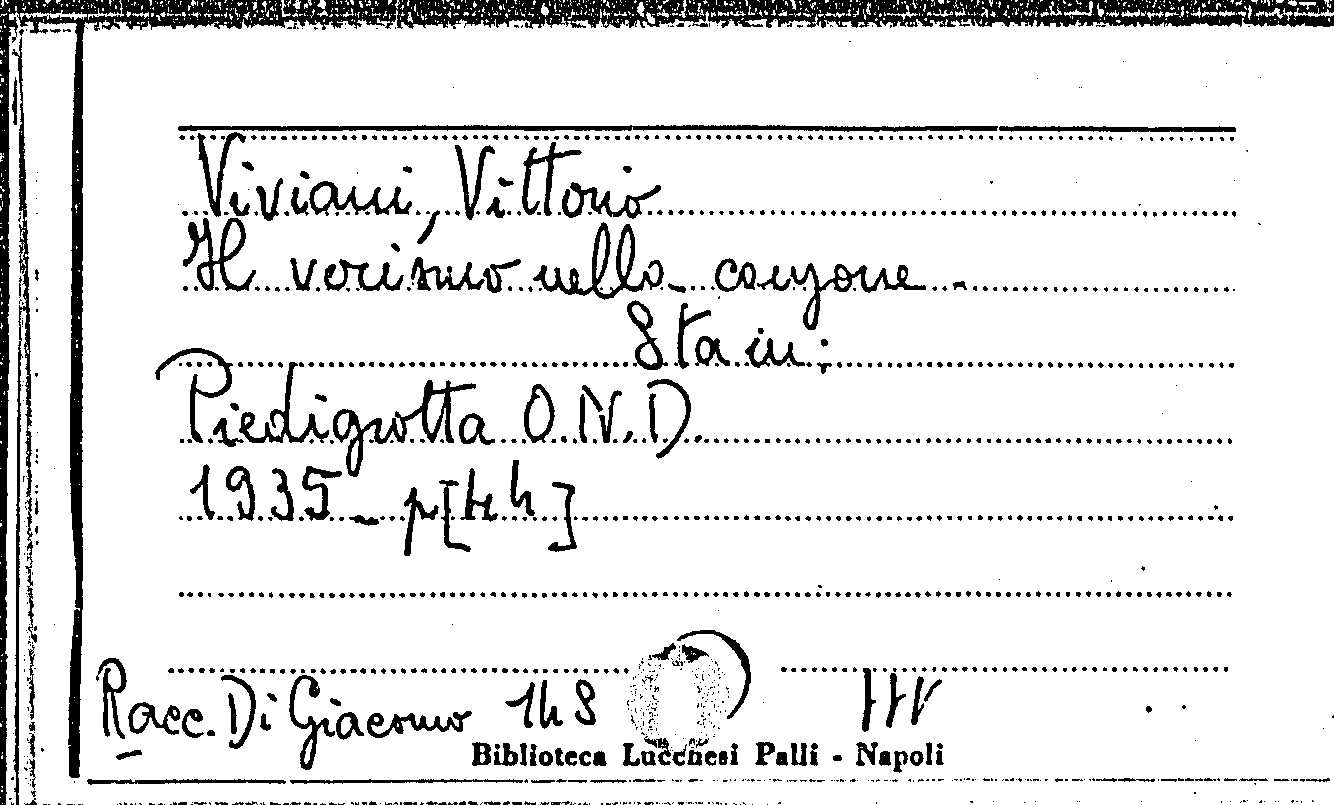 Viviani, Vittorio
Il verismo nella canzone -
Sta in:
Piedigrotta O.N.D.
1935 - p[44]
Racc. Di Giacomo 148
Biblioteca Lucchesi Palli - Napoli